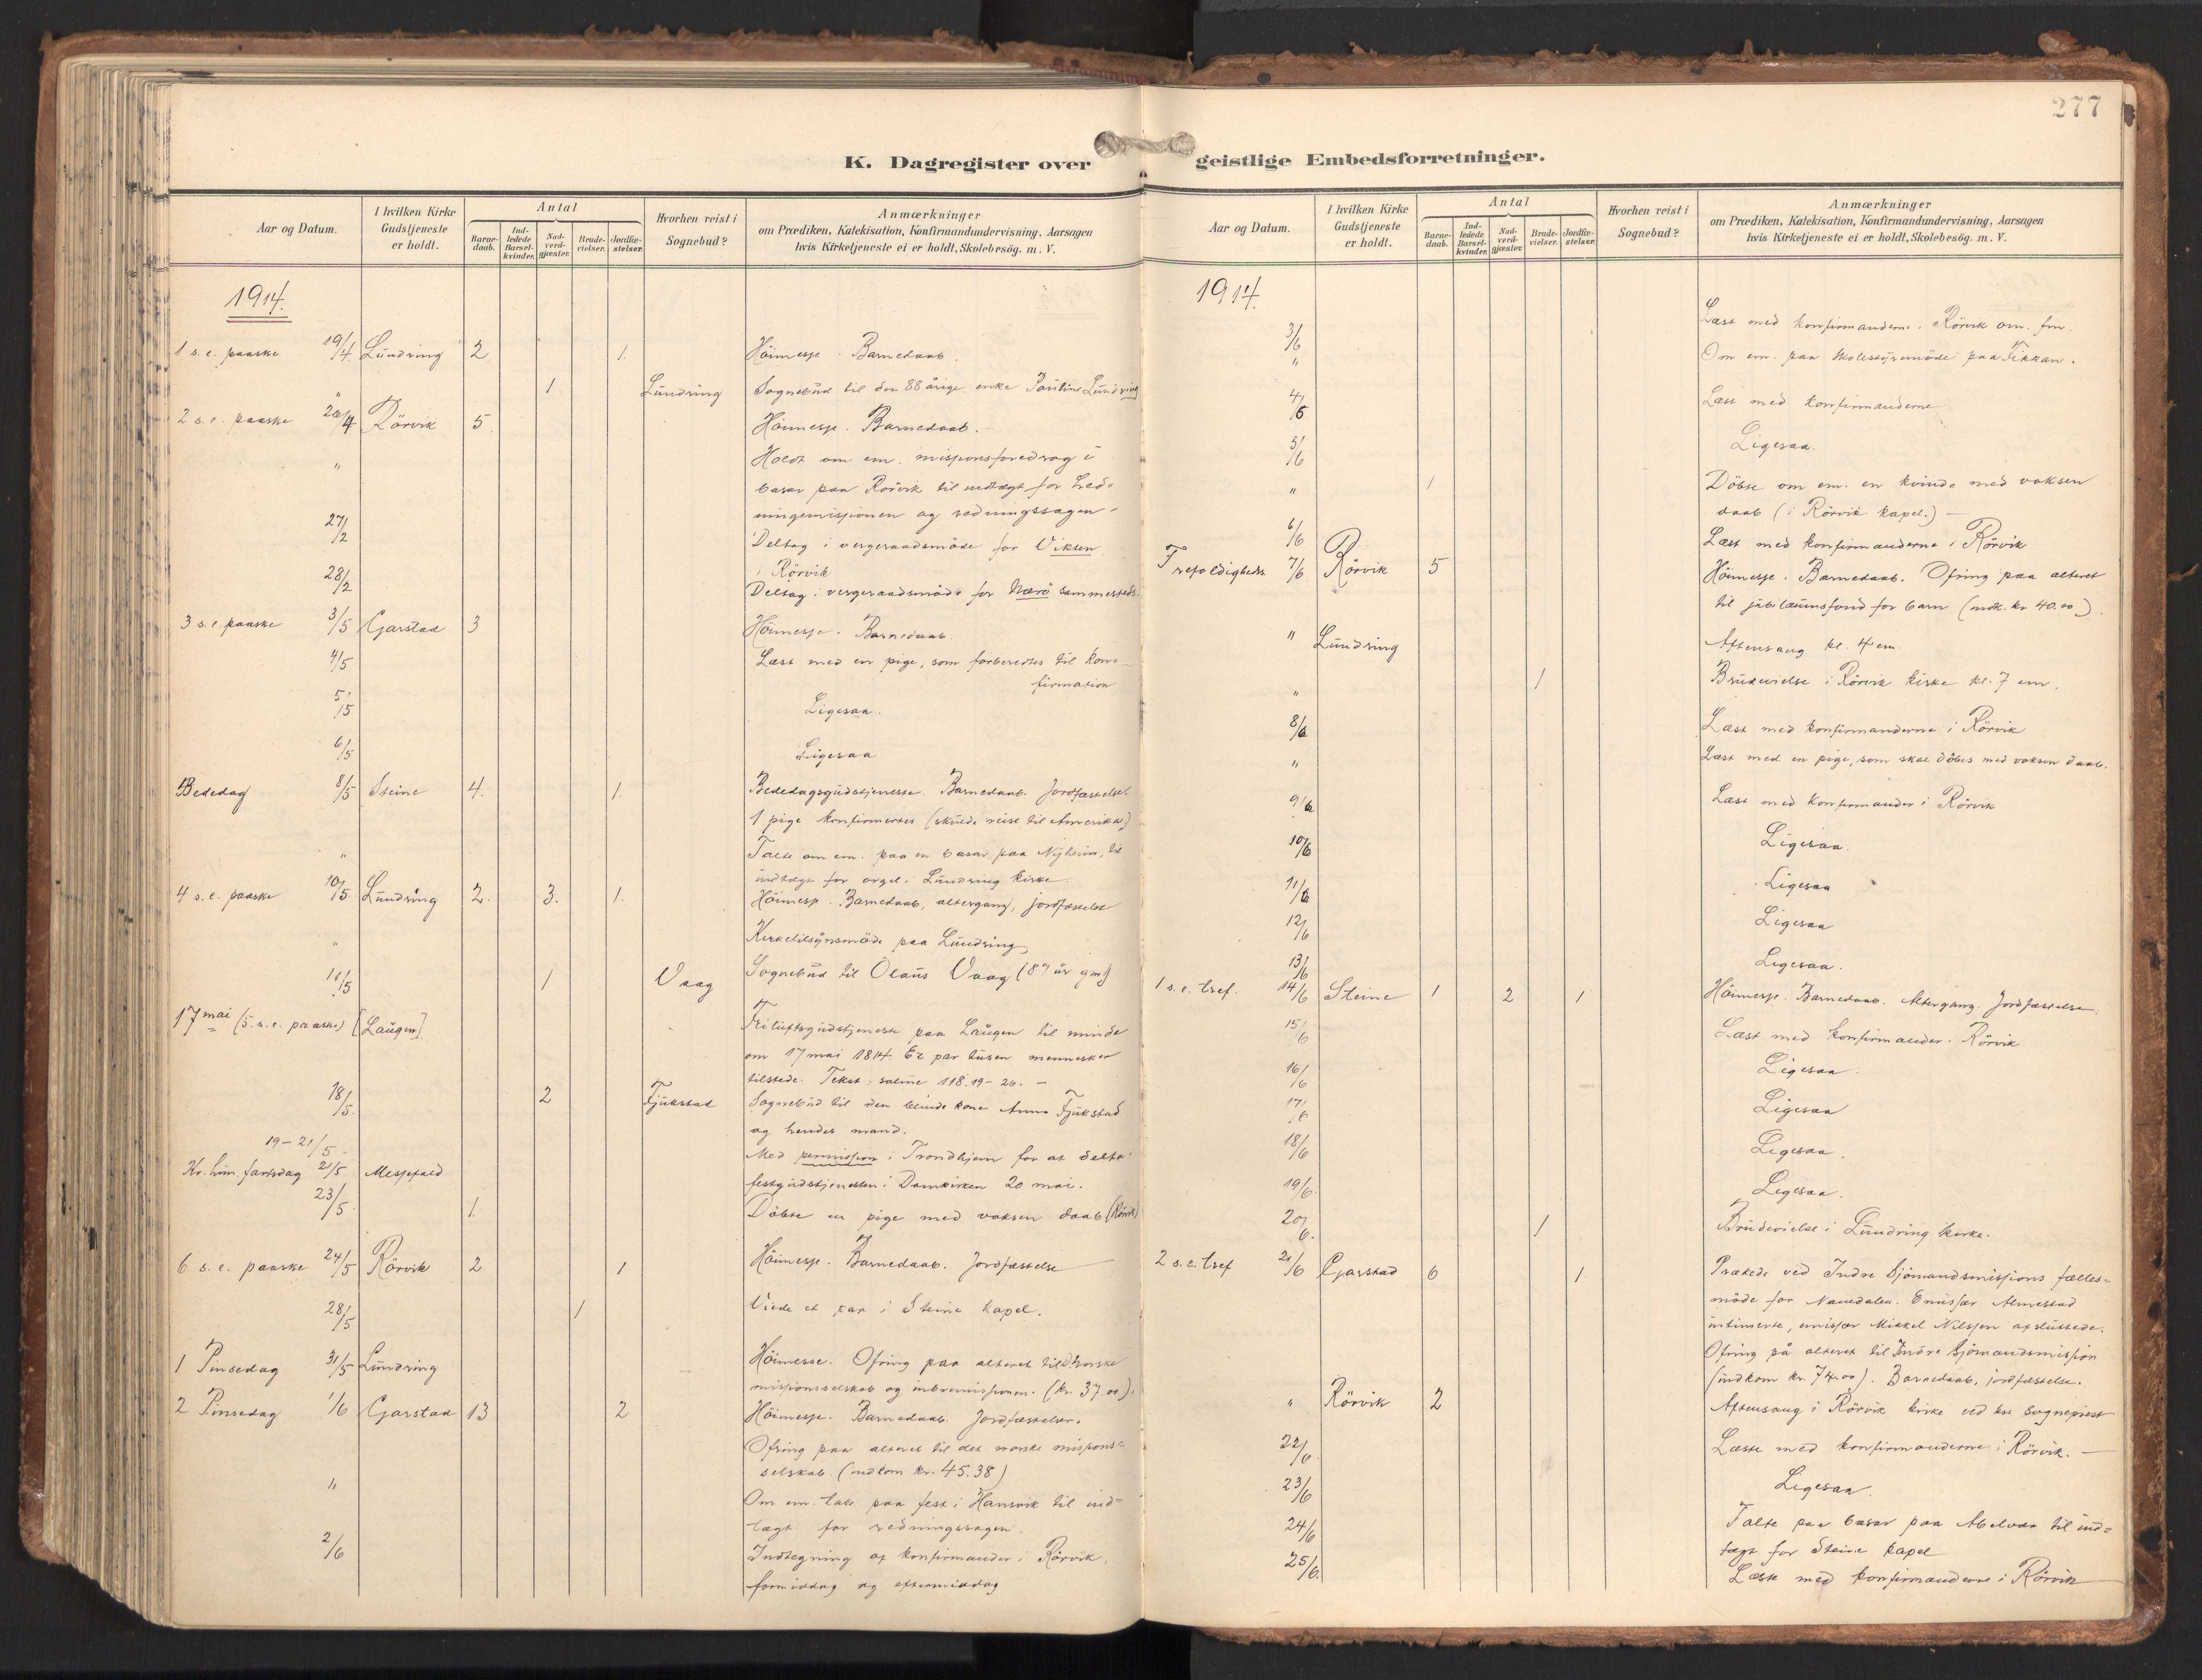 277
K. Dagregister over geistlige Embedsforretninger.
Aar og Datum.
I hvilken Kirke Gudstjeneste er holdt.
Antal
Barne-daab.
Ind-ledede Barsel-kvinder.
Nad-verd-gjæster.
Brude-vielser.
Jordfæ-stelser.
Hvorhen reist i Sognebud?
Anmærkninger
om Prædiken, Katekisation, Konfirmandundervisning, Aarsagen
hvis Kirketjeneste ei er holdt, Skolebesög. m. V.
1914.
1 s. e. paaske 19/4 Lundring 2 1. Höimesse. Barnedaab.
" 1 Lundring Sognebud til den 88 årige enke Pauline Lundring
2 s. e. paaske 26/4 Rörvik 5. Höimesse. Barnedaab.
" Holdt om em. missionsforedrag i
basar paa Rörvik til indtægt for hed-
ningemissionen og redningssagen.
27/2 Deltog i vergeraadsmöde for Vikten
i Rörvik
28/2 Deltog i vergeraadsmöde for Nærö sammesteds.
3 s. e. paaske 3/5 Garstad 3 Höimesse. Barnedaab.
4/5 Læst med en pige, som forberedtes til kon-
firmation
5/5 Ligesaa.
6/5 Ligesaa
Bededag 8/5 Steine 4. 1. Bededagsgudstjeneste. Barnedaab. Jordfæstelse.
1 pige konfirmertes (skulde reise til Amerika)
" Talte om em. paa en basar paa Nyheim, til
indtægt for orgel i Lundring kirke
4 s. e. paaske 10/5 Lundring 2. 3. 1. Höimesse. Barnedaab, altergang, jordfæstelse
" Kirketilsynsmöde paa Lundring
11/5 1 Vaag Sognebud til Olaus Vaag (87 år gml)
17 mai (5. s. e. paaske) [Laugen]. Friluftsgudstjeneste paa Laugen til minde
om 17 mai 1814. Et par tusen mennesker
tilstede. Tekst: salme 118. 19-26. -
18/5. 2 Fjukstad Sognebud til den blinde kone Anna Fjukstad
og hendes mand.
19-21/5 Med permission i Trondhjem for at delta i
Kr. him. fartsdag 21/5 Messefald festgudstjenesten i Domkirken 20 mai.
23/5. 1. Döbte en pige med voksen daab (Rörvik)
6 s. e. paaske 24/5 Rörvik 2 1 Höimesse. Barnedaab. Jordfæstelse
28/5 1 Viede et par i Steine kapel.
1 Pinsedag 31/5 Lundring Höimesse. Ofring paa alteret til d. norske
missionsselskab og indremissionen. (kr. 37.00).
2 Pinsedag 1/6 Garstad 13 2 Höimesse. Barnedaab. Jordfæstelser.
Ofring paa alteret til det norske missions-
selskab. (indkom kr. 45.38)
" Om em. tale paa fest i Hansvik til ind-
tægt for redningssagen.
2/6 Indtegning af konfirmander i Rörvik,
formiddag og eftermiddag
Aar og Datum.
I hvilken Kirke Gudstjeneste er holdt.
Antal
Barne-daab.
Ind-ledede Barsel-kvinder.
Nad-verd-gjæster.
Brude-vielser.
Jordfæ-stelser.
Hvorhen reist i Sognebud?
Anmærkninger
om Prædiken, Katekisation, Konfirmandundervisning, Aarsagen
hvis Kirketjeneste ei er holdt, Skolebesög. m. V.
1914.
3/6 Læst med konfirmanderne i Rörvik om. fm.
" Om em. paa skolestyremöde paa
4/6 Læst med konfirmanderne
5/6 Ligesaa.
" 1 Döbte om em. en kvinde med voksen
daab (i Rörvik kapel.) -
6/6 Læst med konfirmanderne i Rörvik
Trefoldigheds 7/6 Rörvik 5 Höimesse. Barnedaab. Ofring paa alteret
til jubilæumsfond for barn (indk. kr 40.00).
" Lundring Aftensang kl. 4 em.
" 1 Brudevielse i Rörvik kirke kl. 7 em.
8/6 Læst med konfirmanderne i Rörvik
" Læst med en pige, som skal döbes med voksen daab.
9/6 Læst med konfirmander i Rörvik
10/6 Ligesaa.
11/6 Ligesaa
12/6 Ligesaa
13/6 Ligesaa.
1 s. e. tref. 14/6 Steine 1 2 1 Höimesse. Barnedaab. Altergang. Jordfæstelse.
15/6 Læst med konfirmander i Rörvik
16/6 Ligesaa.
17/6 Ligesaa
18/6 Ligesaa.
19/6. Ligesaa.
20/6. 1 Brudevielse i Lundring kirke.
2 s. e. tref 21/6 Garstad 6 1. Prækede ved Indre Sjömandsmissions fælles-
möde for Namdalen. Emissær Almestad
intimerte, emissær Mikkel Nilssen afsluttede.
Ofring på alteret til Indre Sjömandsmission
(indkom kr. 74.00). Barnedaab, jordfæstelse.
" Rörvik 2 Aftensang i Rörvik kirke ved sogneprest
22/6. Læste med konfirmanderne i Rörvik. -
23/6 Ligesaa.
24/6 Talte paa basar paa Abelvær til ind-
tægt for Steine kapel
25/6. Læste med konfirmanderne i Rörvik